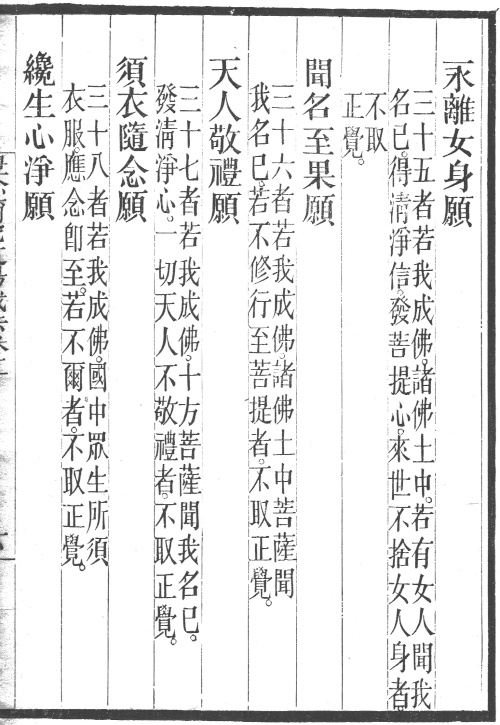 永離女身願
三十五者若我成佛。諸佛土中。若有女人聞我
名已。得清淨信。發菩提心。來世不捨女人身者。
不取
正覺。
聞名至果願
三十六者若我成佛。諸佛土中菩薩聞
我名已。若不修行至菩提者。不取正覺。
天人敬禮願
三十七者若我成佛。十方菩薩聞我名已。
發清淨心。一切天人不敬禮者。不取正覺。
須衣隨念願
三十八者若我成佛。國中眾生所須
衣服。應念卽至。若不爾者。不取正覺。
纔生心淨願